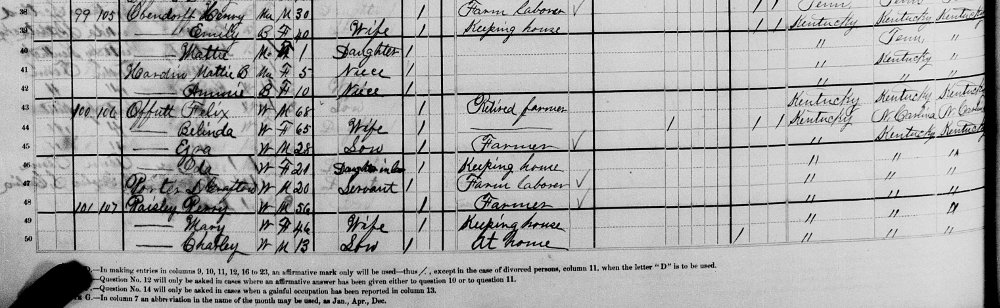 38 99 105 Obendorft Henry Mu M 30 1 Farm laborer 1 1 Tenn. Tenn Kentucky
39 — Emily B F 40 Wife 1 Keeping house 1 1 Kentucky Kentucky Kentucky
— Mattie Mu 1 Daughter 1 " Tenn. "
41 Hardin Mattie B Mu F 5 Niece 1 " Kentucky "
42 — Ammie B F 10 Niece 1 " " "
43 100 106 Offutt Felix W M 68 1 Retired farmer Kentucky Kentucky Kentucky
44 — Belinda W F 65 Wife 1 — 1 1 1 Kentucky N. Carolina N. Carolina
45 — Ezra W M 28 Son 1 Farmer " Kentucky Kentucky
46 — Eda W F 21 Daughter in law 1 Keeping house " " "
47 Porter W M 20 Servant 1 Farm laborer " " "
48 101 107 Paisley Perry W M 56 1 Farmer " " "
49 — Mary W F 46 Wife 1 Keeping house " " "
50 — Charley W M 13 Son 1 At home 1 " " "
—In making entries in columns 9, 10, 11, 12, 16 to 23, an affirmative mark only will be used—thus /, except in the case of divorced persons, column 11, when the letter "D" is to be used.
—Question No. 12 will only be asked in cases where an affirmative answer has been given either to question 10 or to question 11.
—Question No. 14 will only be asked in cases when a gainful occupation has been reported in column 13.
G.—In column 7 an abbreviation in the name of the month may be used, as Jan., Apr., Dec.